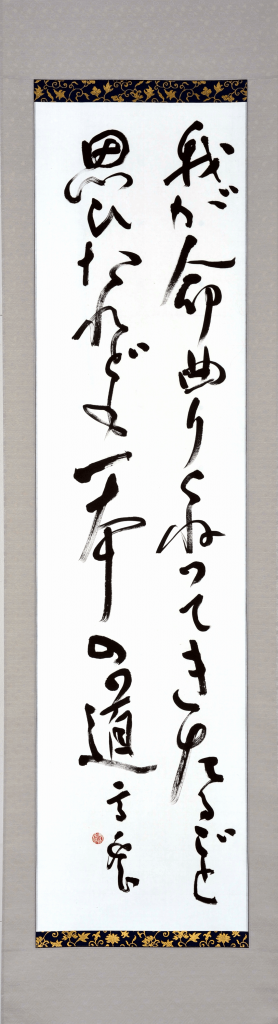 我が命曲りくねってきたるごと
思ひたれども一本の道